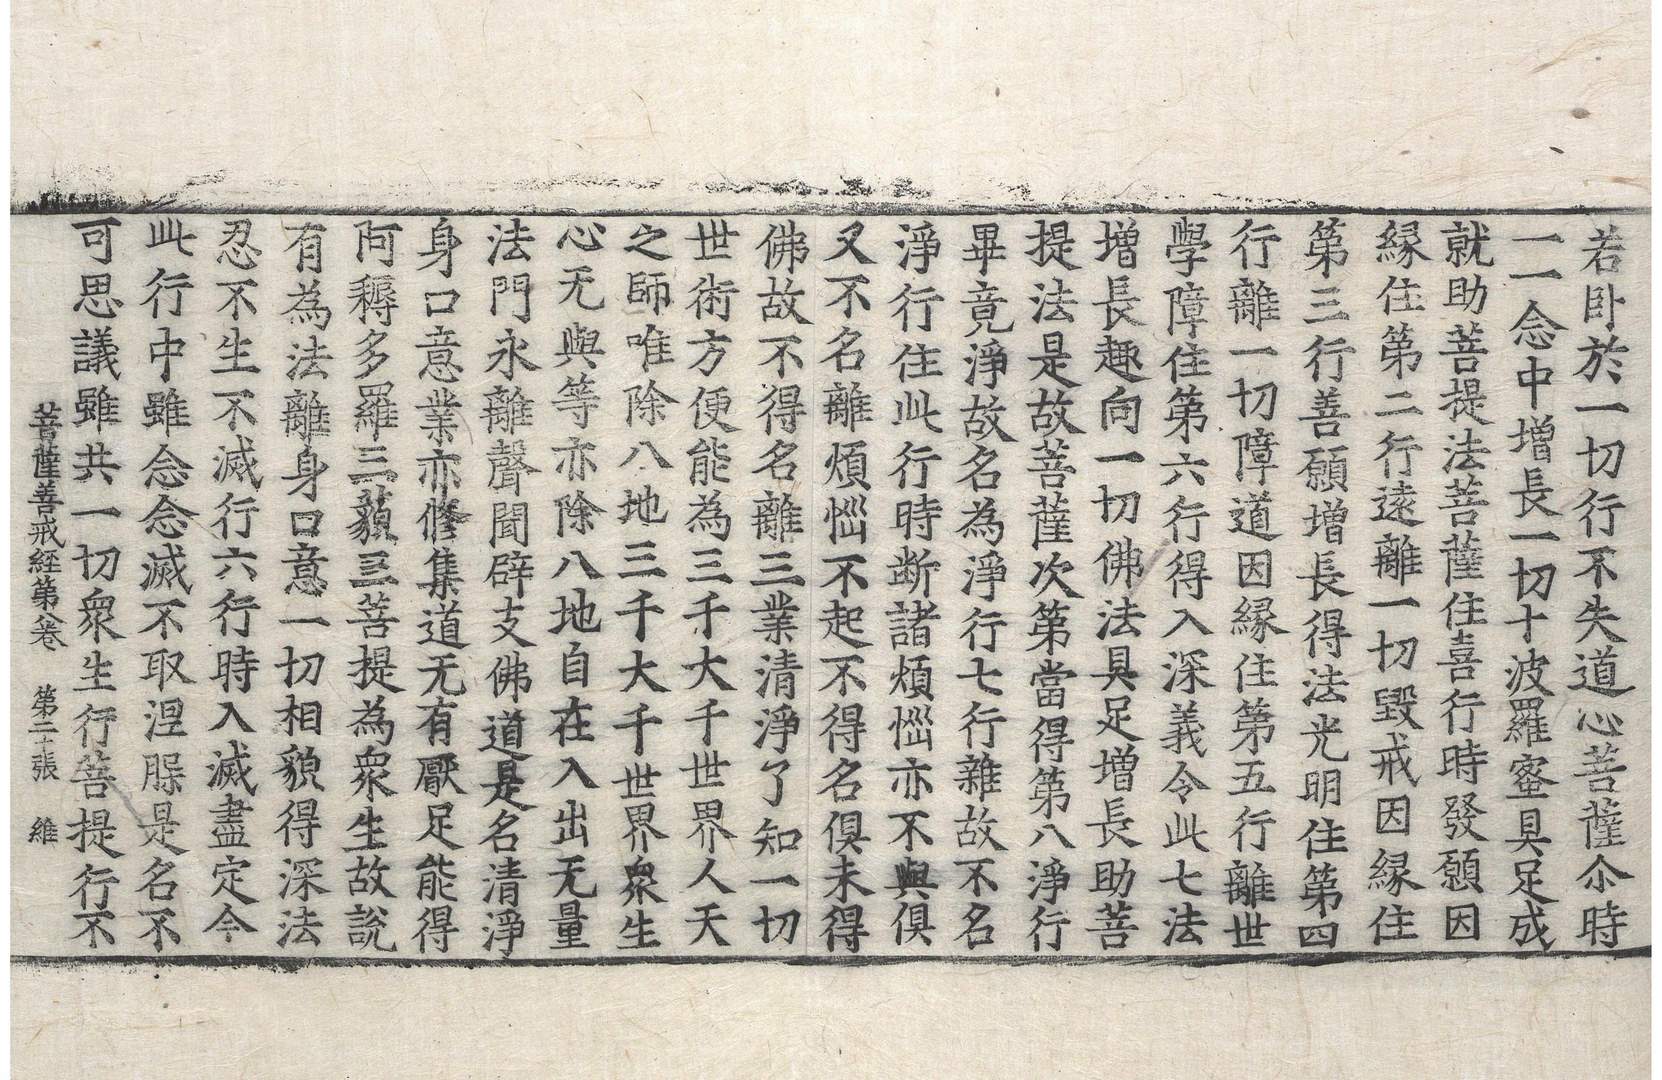 若卧於一切行不失道心菩薩尒時
一一念中增長一切十波羅蜜具足成
就助菩提法菩薩住喜行時發願因
緣住第二行遠離一切毀戒因緣住
第三行善願增長得法光明住第四
行離一切障道因緣住第五行離世
學障住第六行得入深義令此七法
增長趣向一切佛法具足增長助菩
提法是故菩薩次第當得第八淨行
畢竟淨故名為淨行七行雜故不名
淨行住此行時断諸煩惱亦不與俱
又不名離煩惱不起不得名俱未得
佛故不得名離三業清淨了知一切
世術方便能為三千大千世界人天
之師唯除八地三千大千世界衆生
心无與等亦除八地自在入出无量
法門永離聲聞辟支佛道是名清淨
身口意業亦修集道无有厭足能得
阿耨多羅三藐三菩提為衆生故說
有為法離身口意一切相貌得深法
忍不生不滅行六行時入滅盡定今
此行中雖念念滅不取涅槃是名不
可思議雖共一切衆生行菩提行不
菩薩善戒經第八卷　第二十張　維